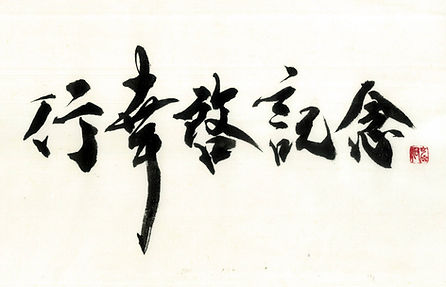 行幸啓記念